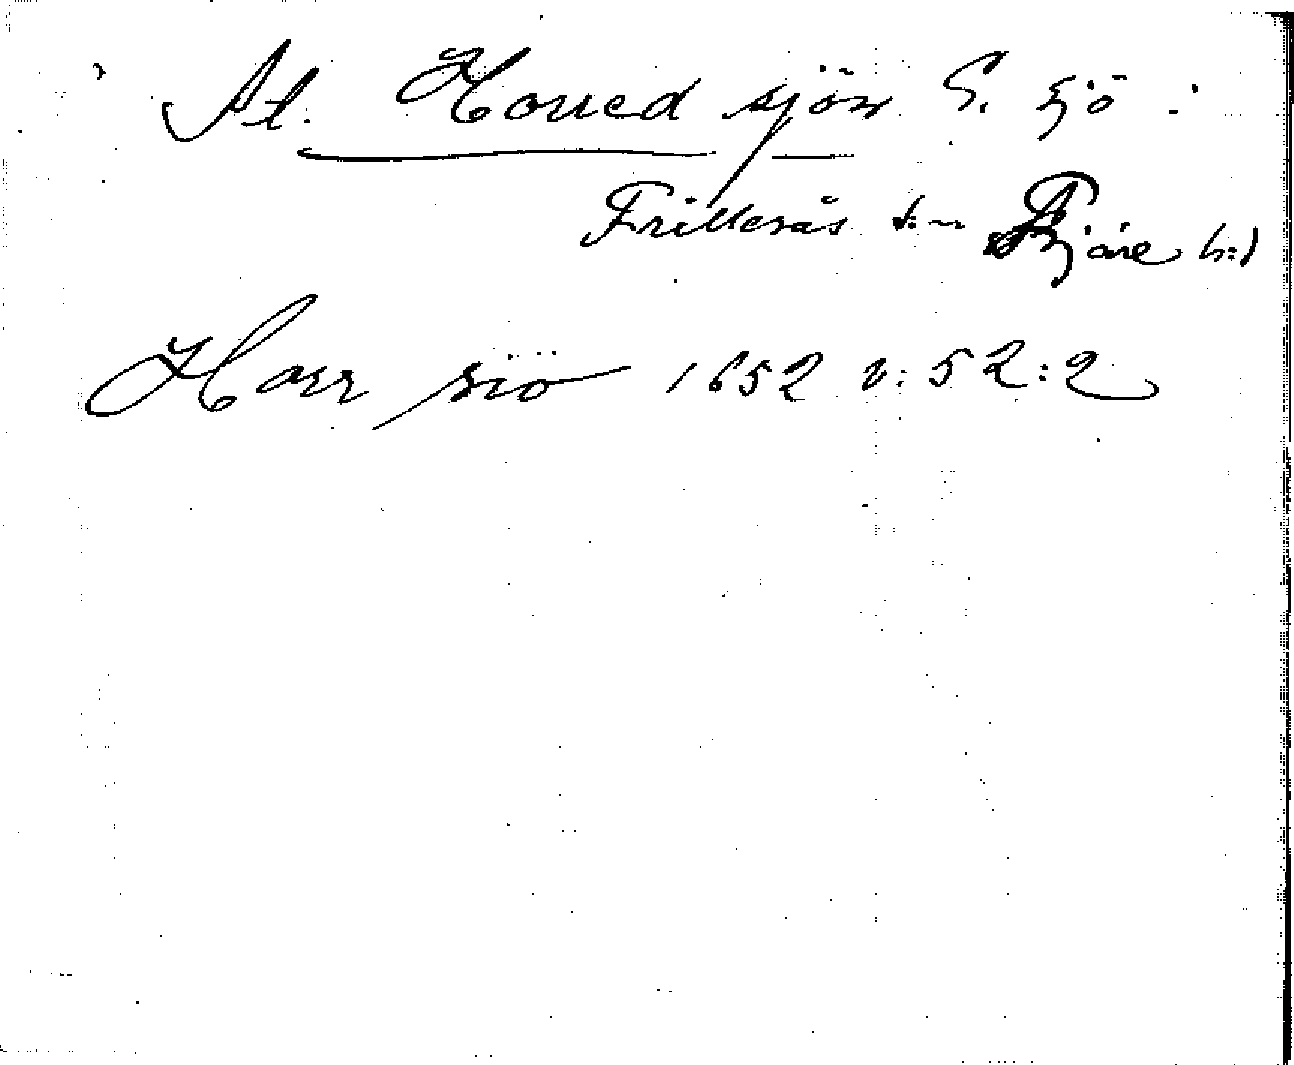 St. Horred sjön S. sjö :
Frillesås s:n Fjäre h:d
Horr siö 1652 v: 52:2